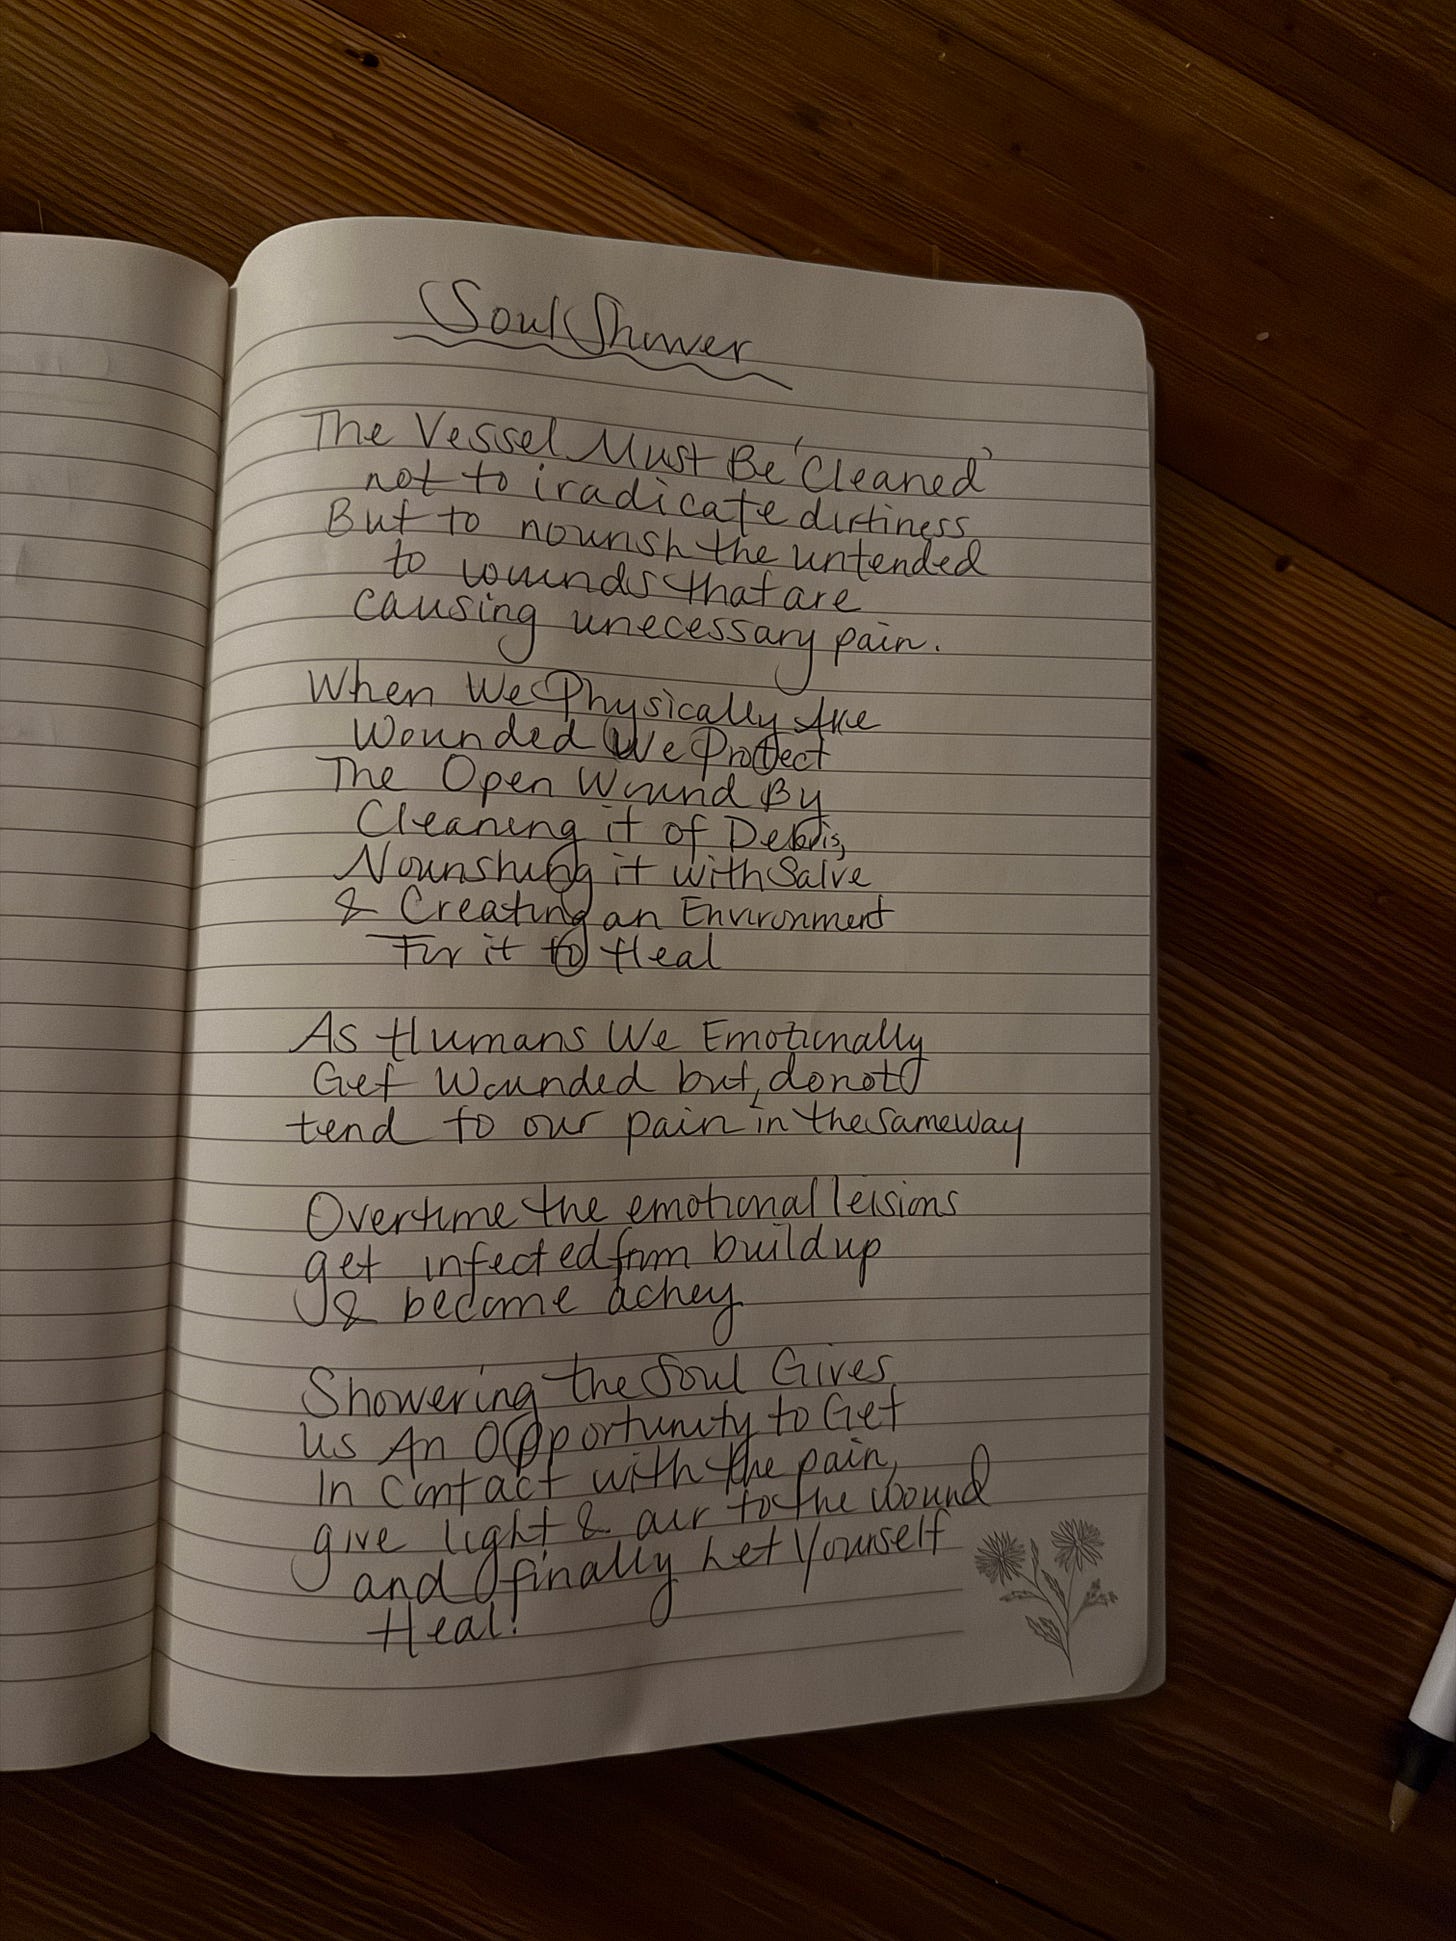 Soul Shower
The Vessel Must Be 'Cleaned'
not to iradicate dirtiness
But to nourish the untended
to wounds that are
causing unecessary pain.
When We Physically Are
Wounded We Protect
The Open Wound By
Cleaning it of Debris,
Nourishing it with Salve
& Creating an Environment
For it to Heal
As Humans We Emotionally
Get Wounded but, do not
tend to our pain in the same way
Overtime the emotional leisions
get infected from build up
& become achey
Showering the Soul Gives
Us An Opportunity to Get
In Contact with the pain,
give light & air to the wound
and finally Let Yourself
Heal!